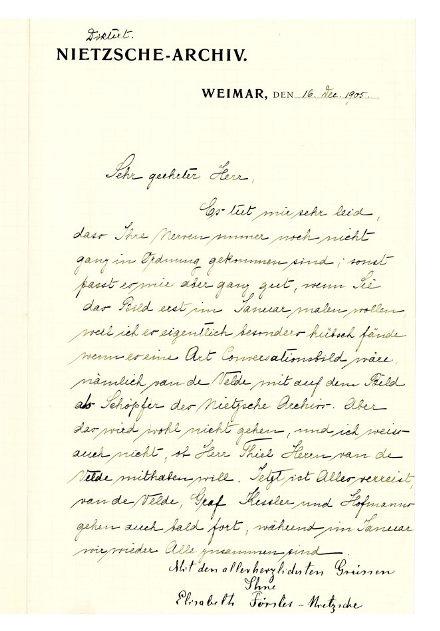 Diktiert.
NIETZSCHE-ARCHIV.
WEIMAR, DEN 16. Dec. 1905.
Sehr geehrter Herr,
Es tut mir sehr leid,
dass Ihre Nerven immer noch nicht
ganz in Ordnung gekommen sind; sonst
passt es mir aber ganz gut, wenn Sie
das Bild erst im Januar malen wollen
weil ich es eigentlich besonders hübsch fände
wenn es eine Art Conversationsbild wäre,
nämlich van de Velde mit auf dem Bild
als Schöpfer des Nietzsche Archivs. Aber
das wird wohl nicht gehen, und ich weiss
auch nicht, ob Herr Thiel Herrn van de
Velde mithaben will. Jetzt ist Alles verreist,
van de Velde, Graf Kessler und Hofmanns
gehen auch bald fort, während im Januar
wir wieder Alle zusammen sind.
Mit den allerherzlichsten Grüssen
Ihre
Elisabeth Förster-Nietzsche